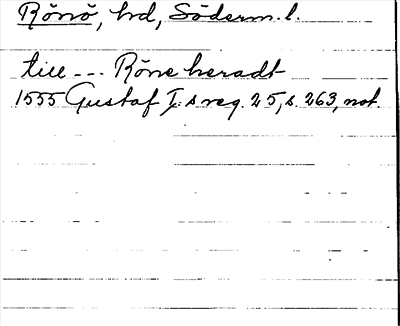 Rönö, hd, Söderm. l.
till --- Röne heradt
1555 Gustaf I:s reg. 25, s. 263, not.